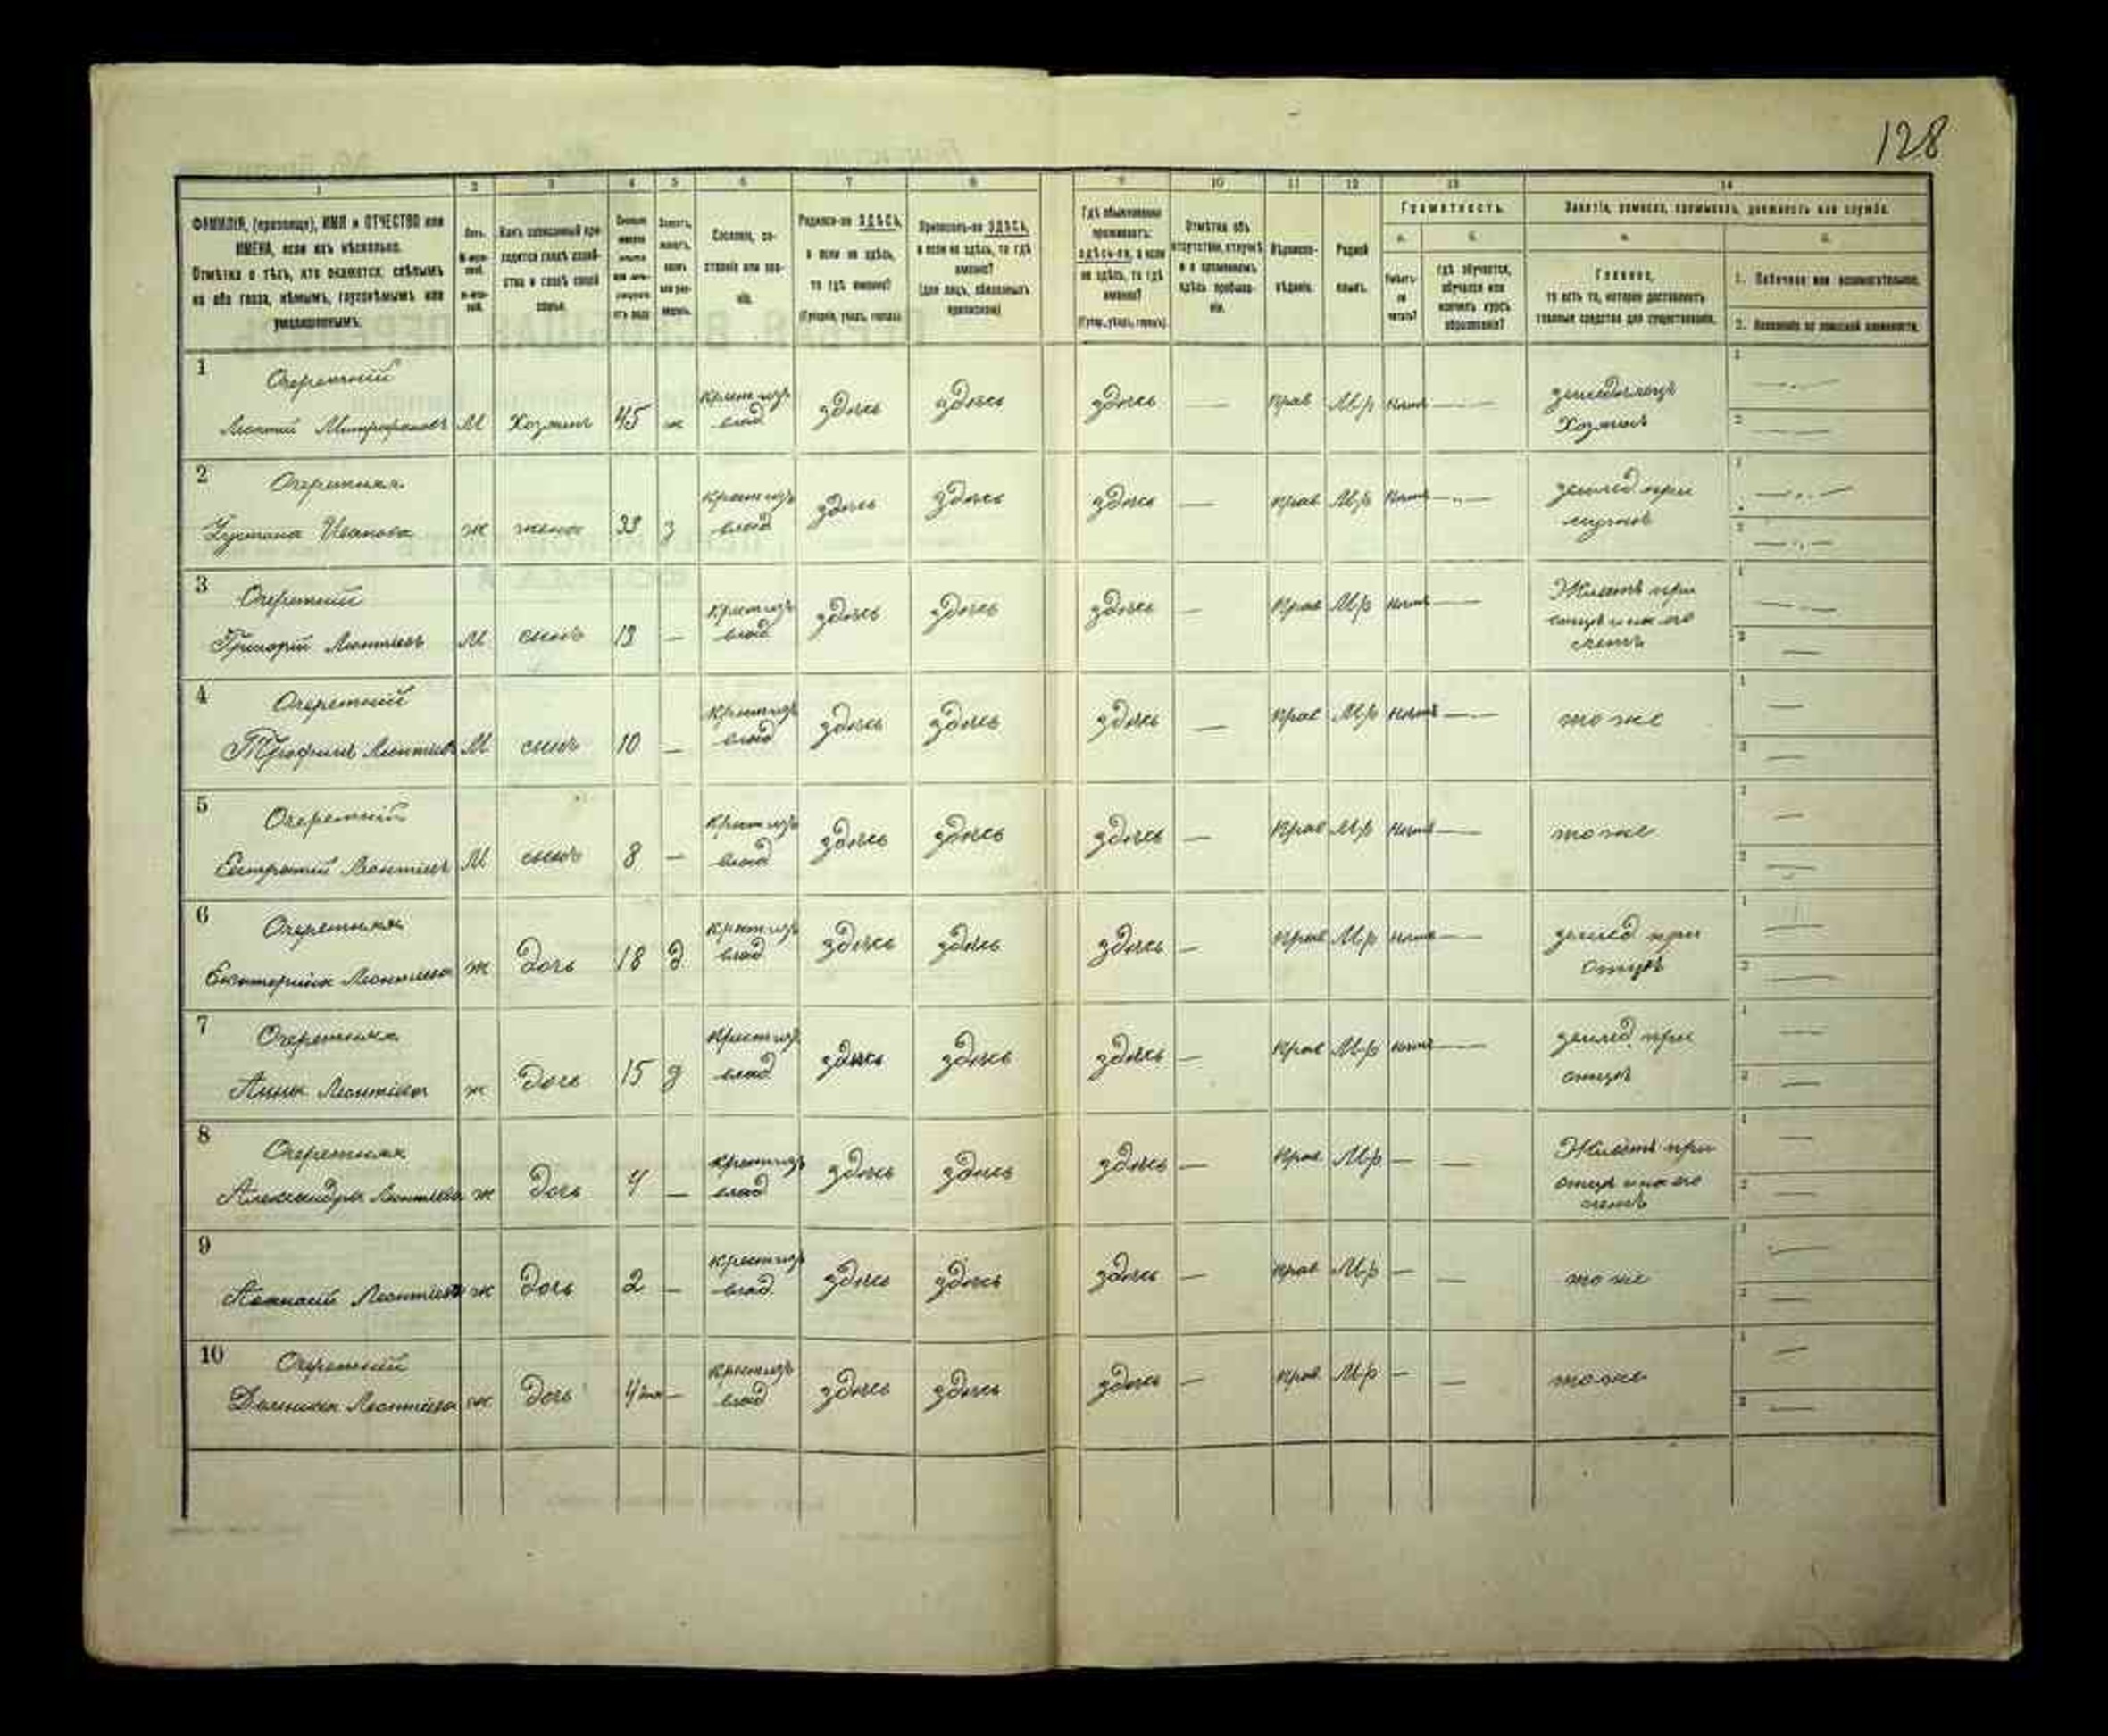 128
1 2 3 4 5 6 7 8 9 10 11 12 13 14
ФАМИЛІЯ, (прозвище), ИМЯ и ОТЧЕСТВО или
ИМЕНА, если ихъ нѣсколько.
Отмѣтка о тѣхъ, кто окажется: слѣпымъ
на оба глаза, нѣмымъ, глухонѣмымъ или
умалишеннымъ.
Полъ.
М-муж-
ской.
Ж-жен-
ской.
Какъ записанный при-
ходится главѣ хозяй-
ства и главѣ своей
семьи.
Сословіе, со-
стояніе или зва-
ніе.
Родился-ли ЗДѢСЬ,
а если не здѣсь,
то гдѣ именно?
(Губернія, уѣздъ, городъ)
Приписанъ-ли ЗДѢСЬ,
а если не здѣсь, то гдѣ
именно?
(для лицъ, обязанныхъ
припискою)
Гдѣ обыкновенно
проживаетъ:
здѣсь-ли, а если
не здѣсь, то гдѣ
именно?
(Губер., уѣздъ, городъ)
Отмѣтка объ
отсутствіи, отлучкѣ
и о временномъ
здѣсь пребыва-
ніи.
Вѣроиспо-
вѣданіе.
Родной
языкъ.
Грамотность.
а.
Умѣетъ-
ли
читать?
б.
гдѣ обучается,
обучался или
кончилъ курсъ
образованія?
Занятіе, ремесло, промыселъ, должность или служба.
а.
Главное,
то есть то, которое доставляетъ
главныя средства для существованія.
б.
1. Побочное или вспомогательное.
2. Положеніе по воинской повинности.
1 Очеретний
Леонтий Митрофановъ М Хозяинъ 45 ж Крест изъ влад здѣсь здѣсь здѣсь — Прав М-р нетъ — земледелецъ Хозяинъ
2 Очеретная
Иванова ж жена 33 з Крест изъ влад здѣсь здѣсь здѣсь — Прав М-р нетъ — землед при мужѣ
3 Очеретний
Григорій Леонтіевъ М сынъ 13 — Крест изъ влад здѣсь здѣсь здѣсь — Прав М-р нетъ — Живетъ при отцѣ и на его счетъ
4 Очеретний
Трофимъ Леонтиев М сынъ 10 — Крест изъ влад здѣсь здѣсь здѣсь — Прав М-р нетъ — тоже
5 Очеретний
Евстратий Леонтіевъ М сынъ 8 — Крест изъ влад здѣсь здѣсь здѣсь — Прав М-р нетъ — тоже
6 Очеретная
Екатерина Леонтиева ж дочь 18 д Крест изъ влад здѣсь здѣсь здѣсь — Прав М-р нетъ — землед при отцѣ
7 Очеретная
Анна Леонтіева ж дочь 15 д Крест изъ влад здѣсь здѣсь здѣсь — Прав М-р нетъ — землед при отцѣ
8 Очеретная
Александра Леонтиева ж дочь 4 — Крест изъ влад здѣсь здѣсь здѣсь — Прав М-р — — Живетъ при отцѣ и на его счетъ
9
Леонтиева ж дочь 2 — Крест изъ влад здѣсь здѣсь здѣсь — Прав М-р — — тоже
10 Очеретний
Домника Леонтиева ж дочь — Крест изъ влад здѣсь здѣсь здѣсь — Прав М-р — — тоже